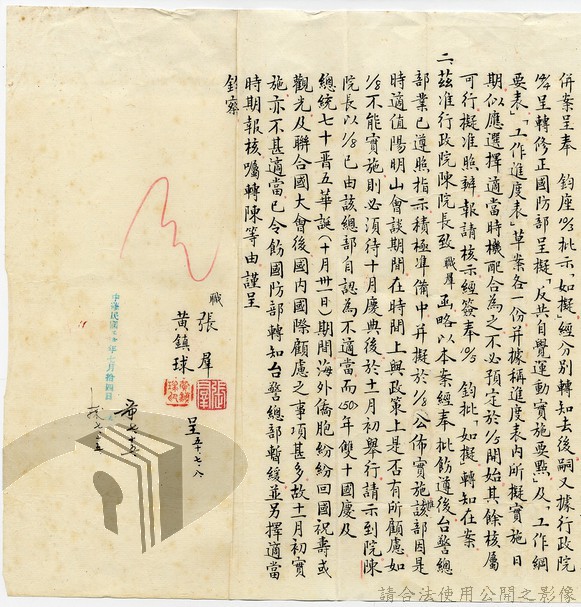 併案呈奉　鈞座批示「如擬」經分別轉知去後嗣又據行政院
呈轉修正國防部呈擬「反共自覺運動實施要點」及「工作綱
要表」「工作進度表」草案各一份并據稱進度表內所擬實施日
期似應選擇適當時機配合為之不必預定於開始其餘核屬
可行擬准照辦報請核示經簽奉　鈞批「如擬」轉知在案
二、茲准行政院陳院長致職羣函略以本案經奉批飭遵後台警總
部業已遵照指示積極準備中并擬於公佈實施惟該部因是
時適值陽明山會談期間在時間上與政策上是否有所顧慮如
不能實施則必須待十月慶典後於十一月初舉行請示到院陳
院長以已由該總部自認為不適當而(50)年雙十國慶及
總統七十晋五華誕(十月卅一日)期間海外僑胞紛紛回國祝壽或
觀光及聯合國大會後國內國際顧慮之事項甚多故十一月初實
施亦不甚適當已令飭國防部轉知台警總部暫緩並另擇適當
時期報核囑轉陳等由謹呈
鈞察
職張羣
黃鎮球
呈五十、七、八
中華民國五十年七月拾四日
請合法使用公開之影像